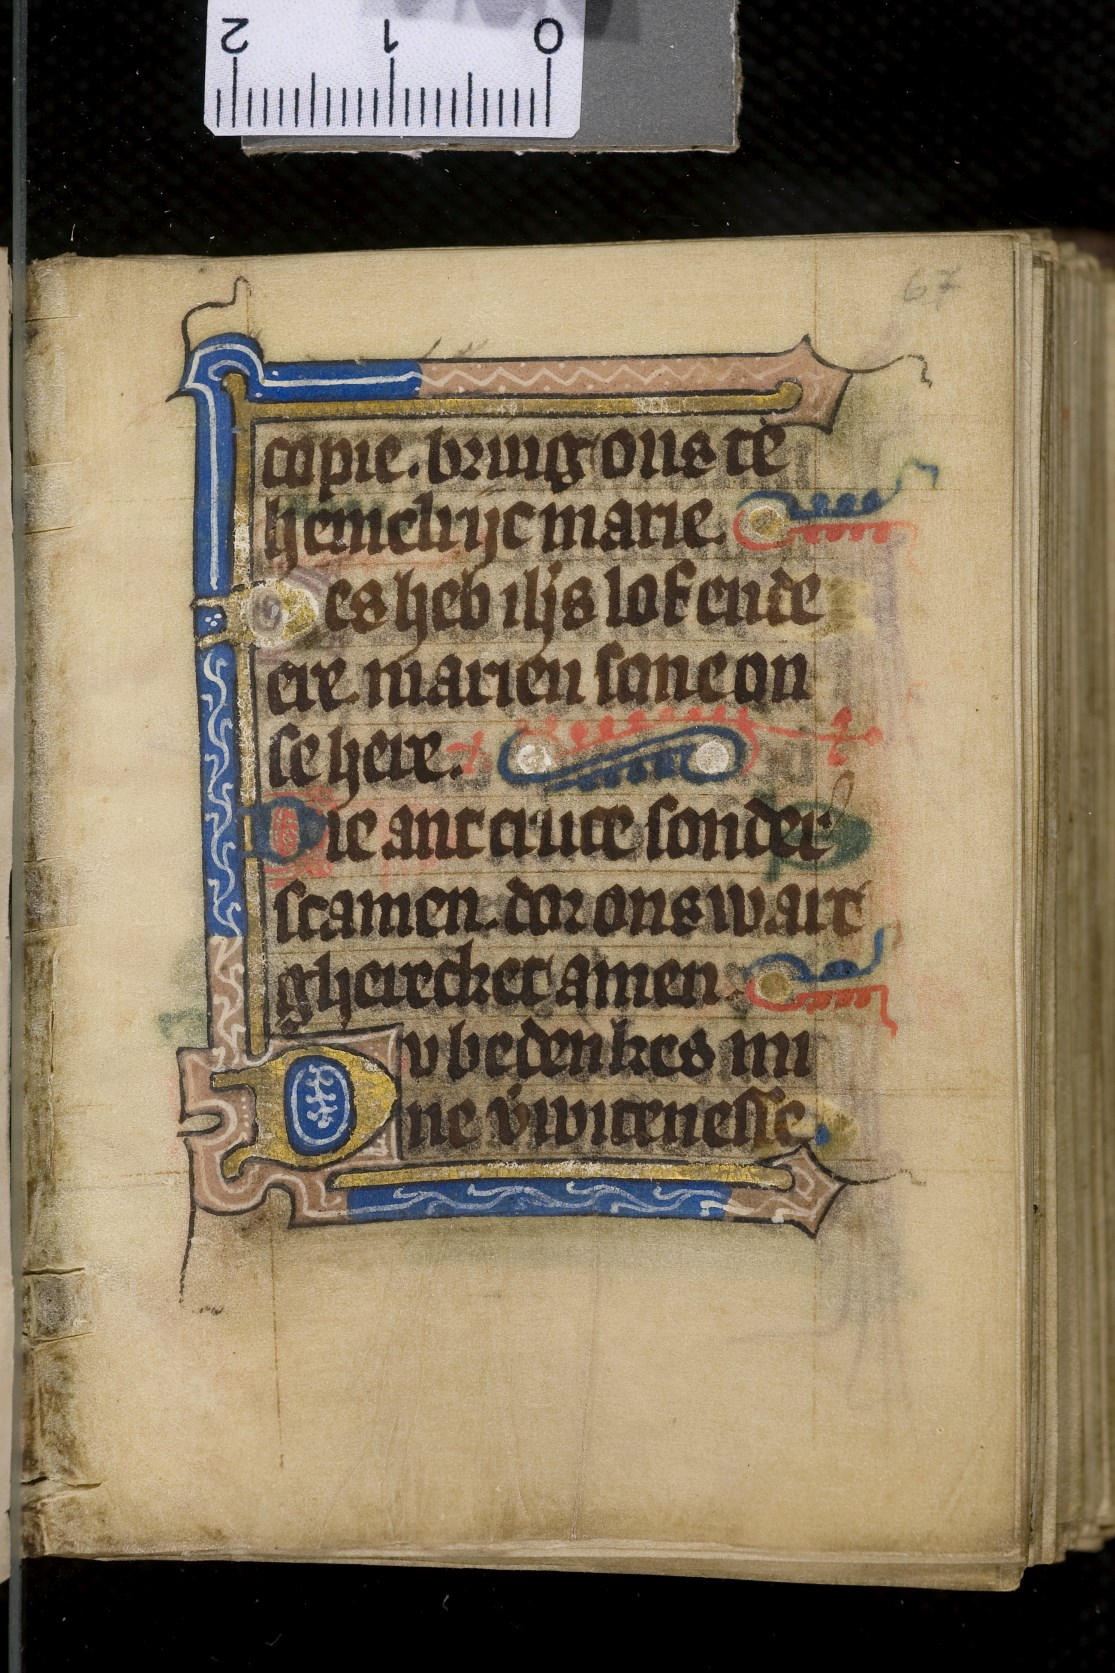 2 1 0
67
copie. bring ons te
hemelrijc marie
Des heb ihs lof ende
ere marien sone on
se here.
Die ant cruce sonder
scamen. dor ons wart
gherecket amen.
Nu bedenkes mi
ne v̾witenesse